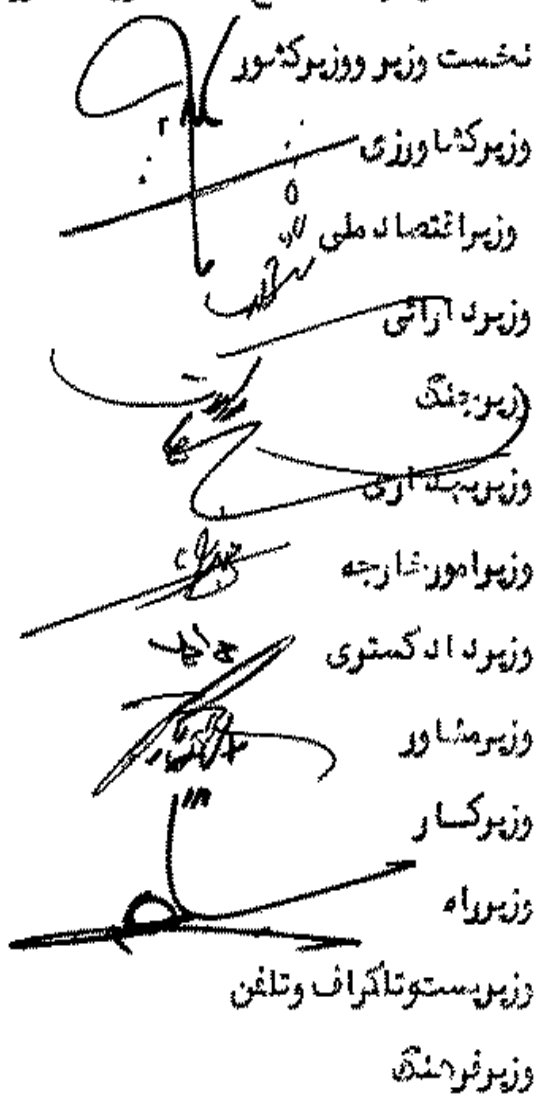 نخست وزیر ووزیرکشور
وزیرکشاورزی
وزیراقتصاد ملی
وزیردارائی
وزیرجنگ
وزیربهداری
وزیرامورخارجه
وزیردادگستری
وزیرمشاور
وزیرکار
وزیرراه
وزیرپست وتلگراف وتلفن
وزیرفرهنگ